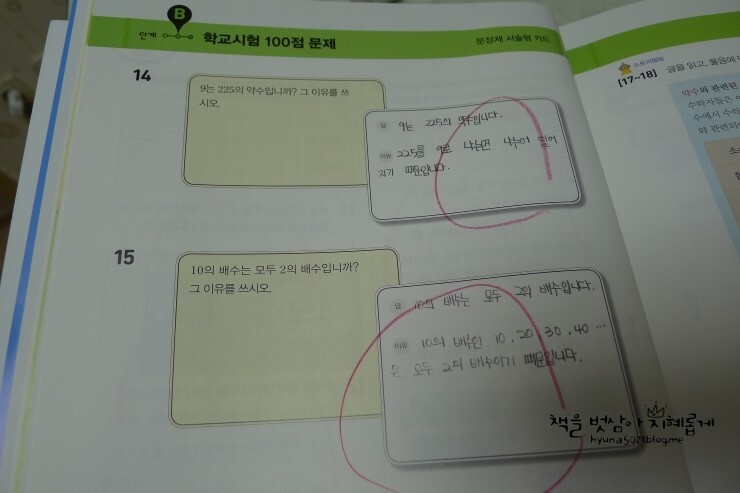 B
단계
학교시험 100점 문제
문장제 서술형 카드
14
9는 225의 약수입니까? 그 이유를 쓰
시오.
답 9는 225의 약수입니다.
이유 225를 9로 나누면 나누어 떨어
지기 때문입니다.
15
10의 배수는 모두 2의 배수입니까?
그 이유를 쓰시오.
답 10의 배수는 모두 2의 배수입니다.
이유 10의 배수인 10, 20, 30, 40 ...
은 모두 2의 배수이기 때문입니다.
스토리텔링
[17~18] 글을 읽고, 물음에
약수와 관련된
수학자들은
수에서 수학
와 관련되
책을 벗삼아 지혜롭게